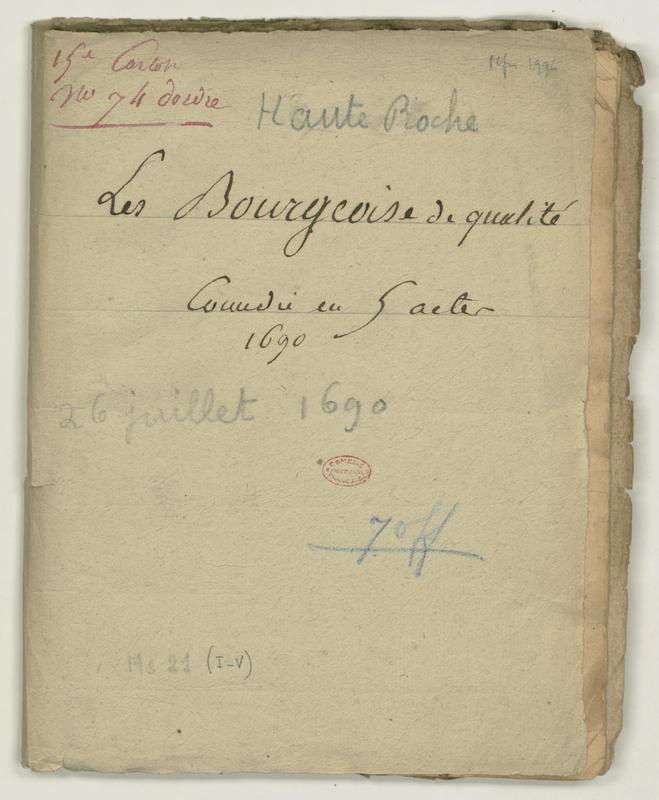 15e Carton
No 74 dowre
Haute Roche
Les Bourgeoise de qualité
Comedie en 5 actes
1690
26 juillet 1690
COMEDIE
FRANCAISE
70ff
Ms 21 (I-V)